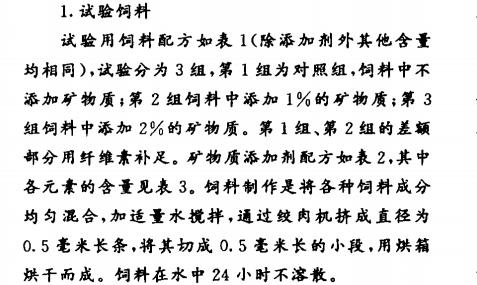 1.试验饲料
试验用饲料配方如表1(除添加剂外其他含量
均相同),试验分为3组,第1组为对照组,饲料中不
添加矿物质;第2组饲料中添加1%的矿物质;第3
组饲料中添加2%的矿物质。第1组、第2组的差额
部分用纤维素补足。矿物质添加剂配方如表2,其中
各元素的含量见表3。饲料制作是将各种饲料成分
均匀混合,加适量水搅拌,通过绞肉机挤成直径为
0.5毫米长条,将其切成0.5毫米长的小段,用烘箱
烘干而成。饲料在水中24小时不溶散。